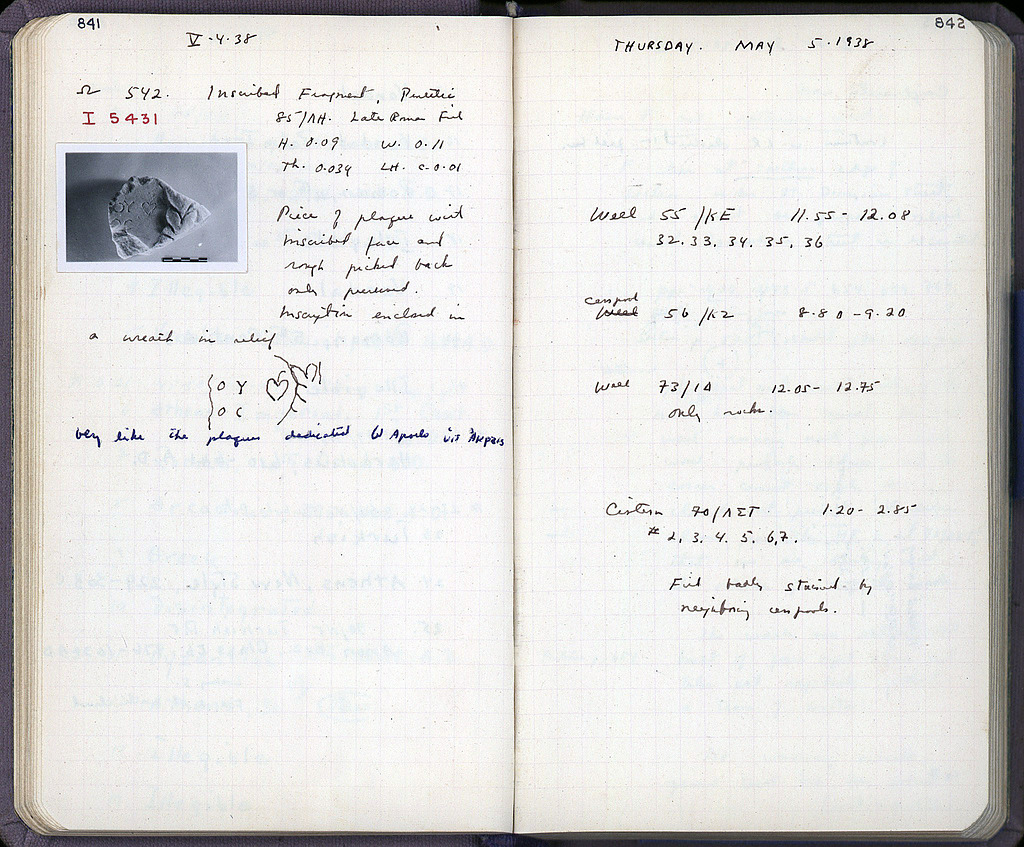 841
V-4-38
Ω 542. Inscribed Fragment, Pentelic
I 5431
85/ΛΗ. Late Roman Fill
H. 0.09 W. 0.11
Th. 0.034 LH. c. 0.01
Piece of plaque with
inscribed face and
rough picked back
only preserved.
Inscription enclosed in
a wreath in relief
Ο Υ
Ο C
very like the plaques dedicated to Apollo
842
THURSDAY. MAY 5. 1938
Well 55/ΚΕ 11.55 - 12.08
32. 33. 34. 35. 36
cesspool
Well 56/ΚΖ 8.80 - 9.20
Well 73/ΙΔ 12.05 - 12.75
only rocks.
Cistern 70/ΛΣΤ 1.20 - 2.85
# 2, 3, 4. 5. 6, 7.
Fill badly stained by
neighboring cesspools.